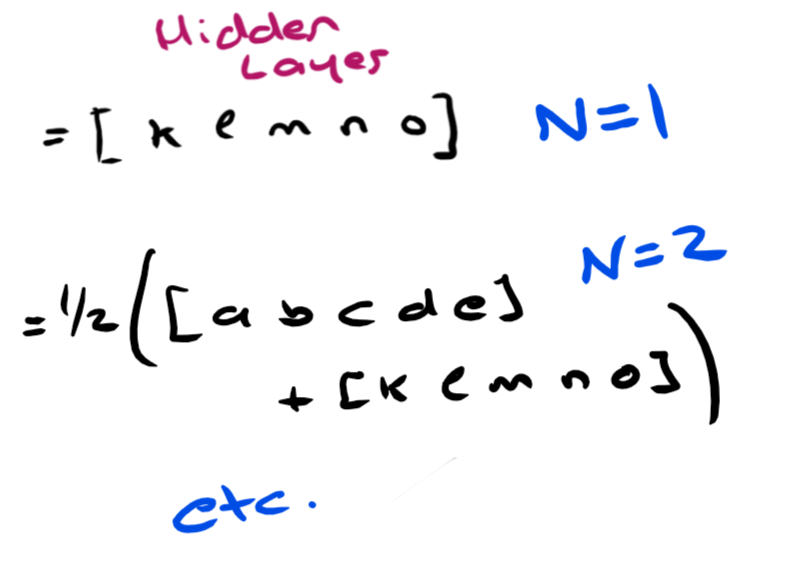 Hidden
Layer
= [ k l m n o ] N=1
= 1/2 ( [ a b c d e ] N=2
+ [ k l m n o ] )
etc.